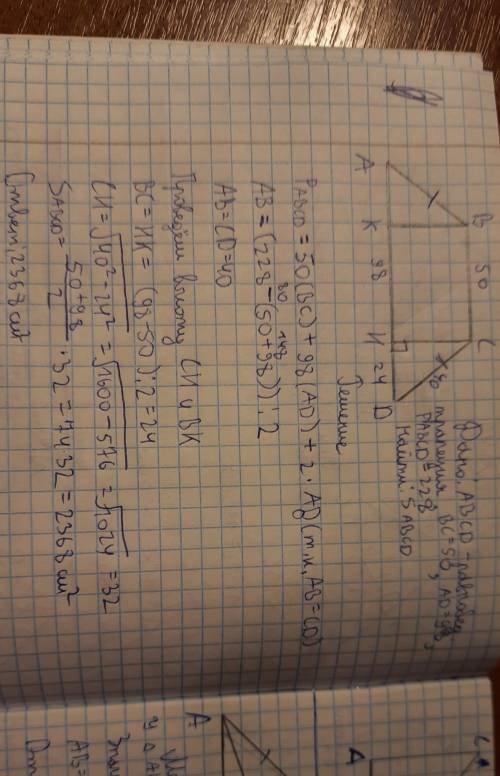 Дано: ABCD – равнобед.
трапеция BC=50, AD=98,
PABCD=228
Найти: S ABCD
B 50 C
A K 98 H 24 D
Решение
PABCD = 50(BC) + 98(AD) + 2 · AB (т.к. AB=CD)
80 148
AB = (228-(50+98)):2
AB=CD=40
Проведём высоту CH и BK
BC=HK= (98-50):2=24
CH=√40²-24² = √1600-576 = √1024 = 32
SABCD = 50+98/2 · 32 = 74·32 = 2368 см²
Ответ: 2368 см²
A
A
AB=